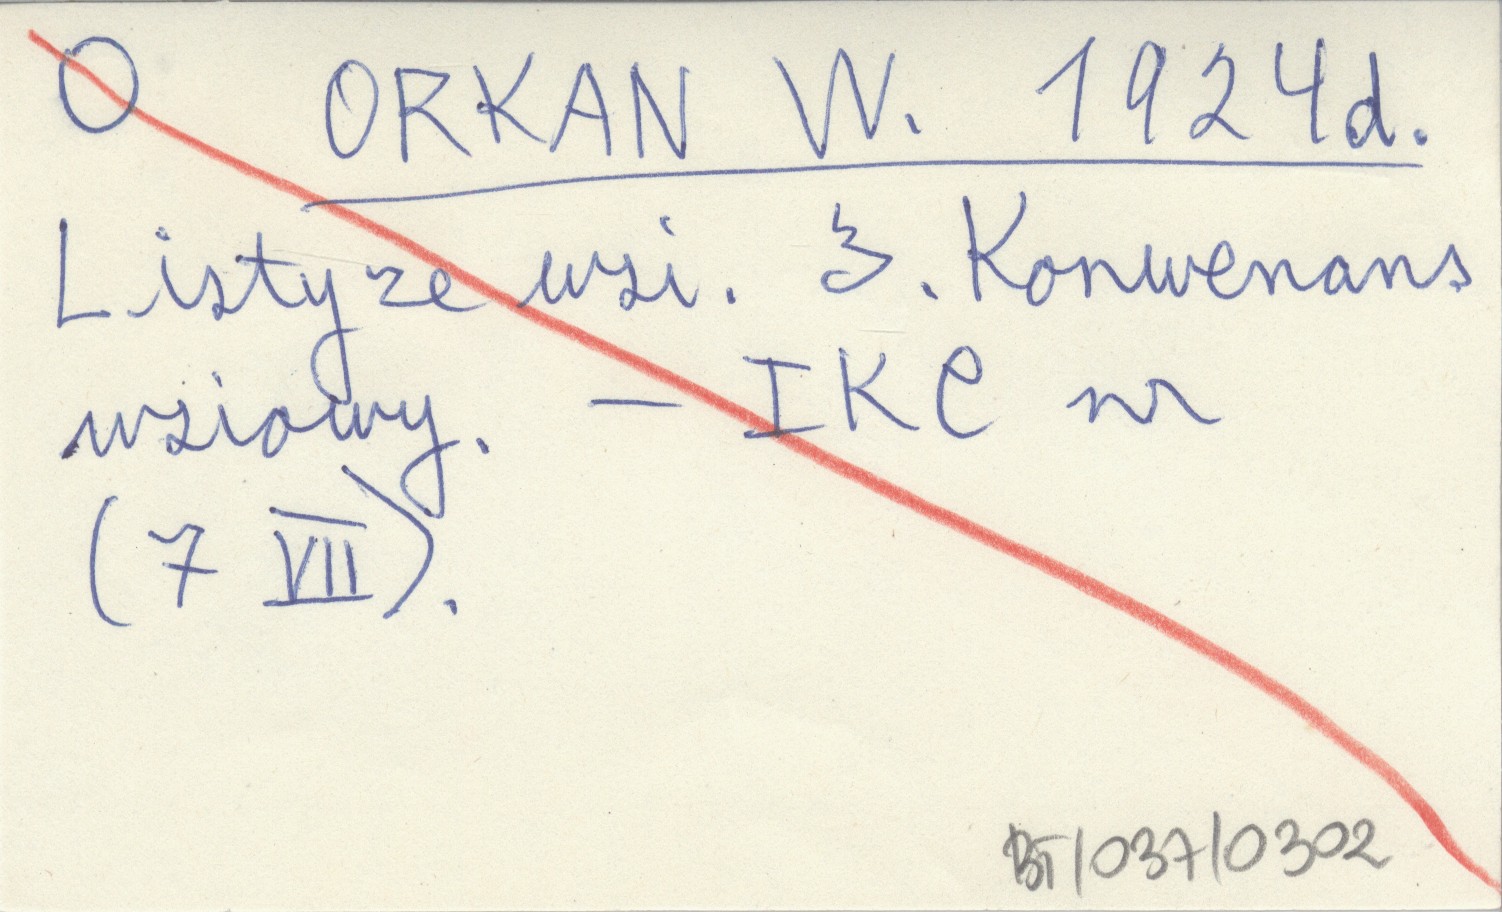 O ORKAN W. 1924d.
Listy ze wsi. 3. Konwenans
wsiowy. — IKC nr
(7 VII).
BT/037/0302